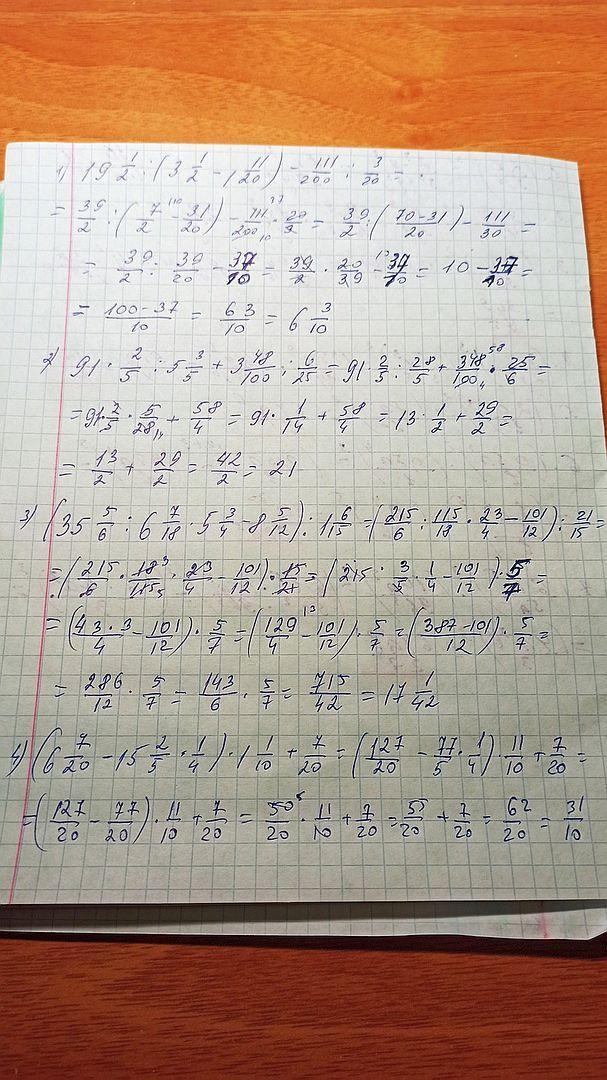 1) 19 1/2 : (3 1/2 - 1 11/20) - 111/200 : 3/20 = ...
= 39/2 : (7/2 - 31/20) - 111/200 · 20/3 = 39/2 : (70-31/20) - 111/30 =
= 39/2 : 39/20 - 37/10 = 39/2 · 20/39 - 37/10 = 10 - 37/10 =
= 100-37/10 = 63/10 = 6 3/10
2) 91 · 2/5 : 5 3/5 + 3 48/100 : 6/25 = 91 · 2/5 : 28/5 + 348/100 · 25/6 =
= 91 · 2/5 · 5/28 + 58/4 = 91 · 1/14 + 58/4 = 13 · 1/2 + 29/2 =
= 13/2 + 29/2 = 42/2 = 21
3) (35 5/6 : 6 7/18 · 5 3/4 - 8 5/12) : 1 6/15 = (215/6 : 115/18 · 23/4 - 101/12) : 21/15 =
= (215/6 · 18/115 · 23/4 - 101/12) · 15/21 = (215 · 3/5 · 1/4 - 101/12) · 5/7 =
= (43·3/4 - 101/12) · 5/7 = (129/4 - 101/12) · 5/7 = (387-101/12) · 5/7 =
= 286/12 · 5/7 = 143/6 · 5/7 = 715/42 = 17 1/42
4) (6 7/20 - 15 2/5 · 1/4) · 1 1/10 + 7/20 = (127/20 - 77/5 · 1/4) · 11/10 + 7/20 =
= (127/20 - 77/20) · 11/10 + 7/20 = 50/20 · 11/10 + 7/20 = 55/20 + 7/20 = 62/20 = 31/10